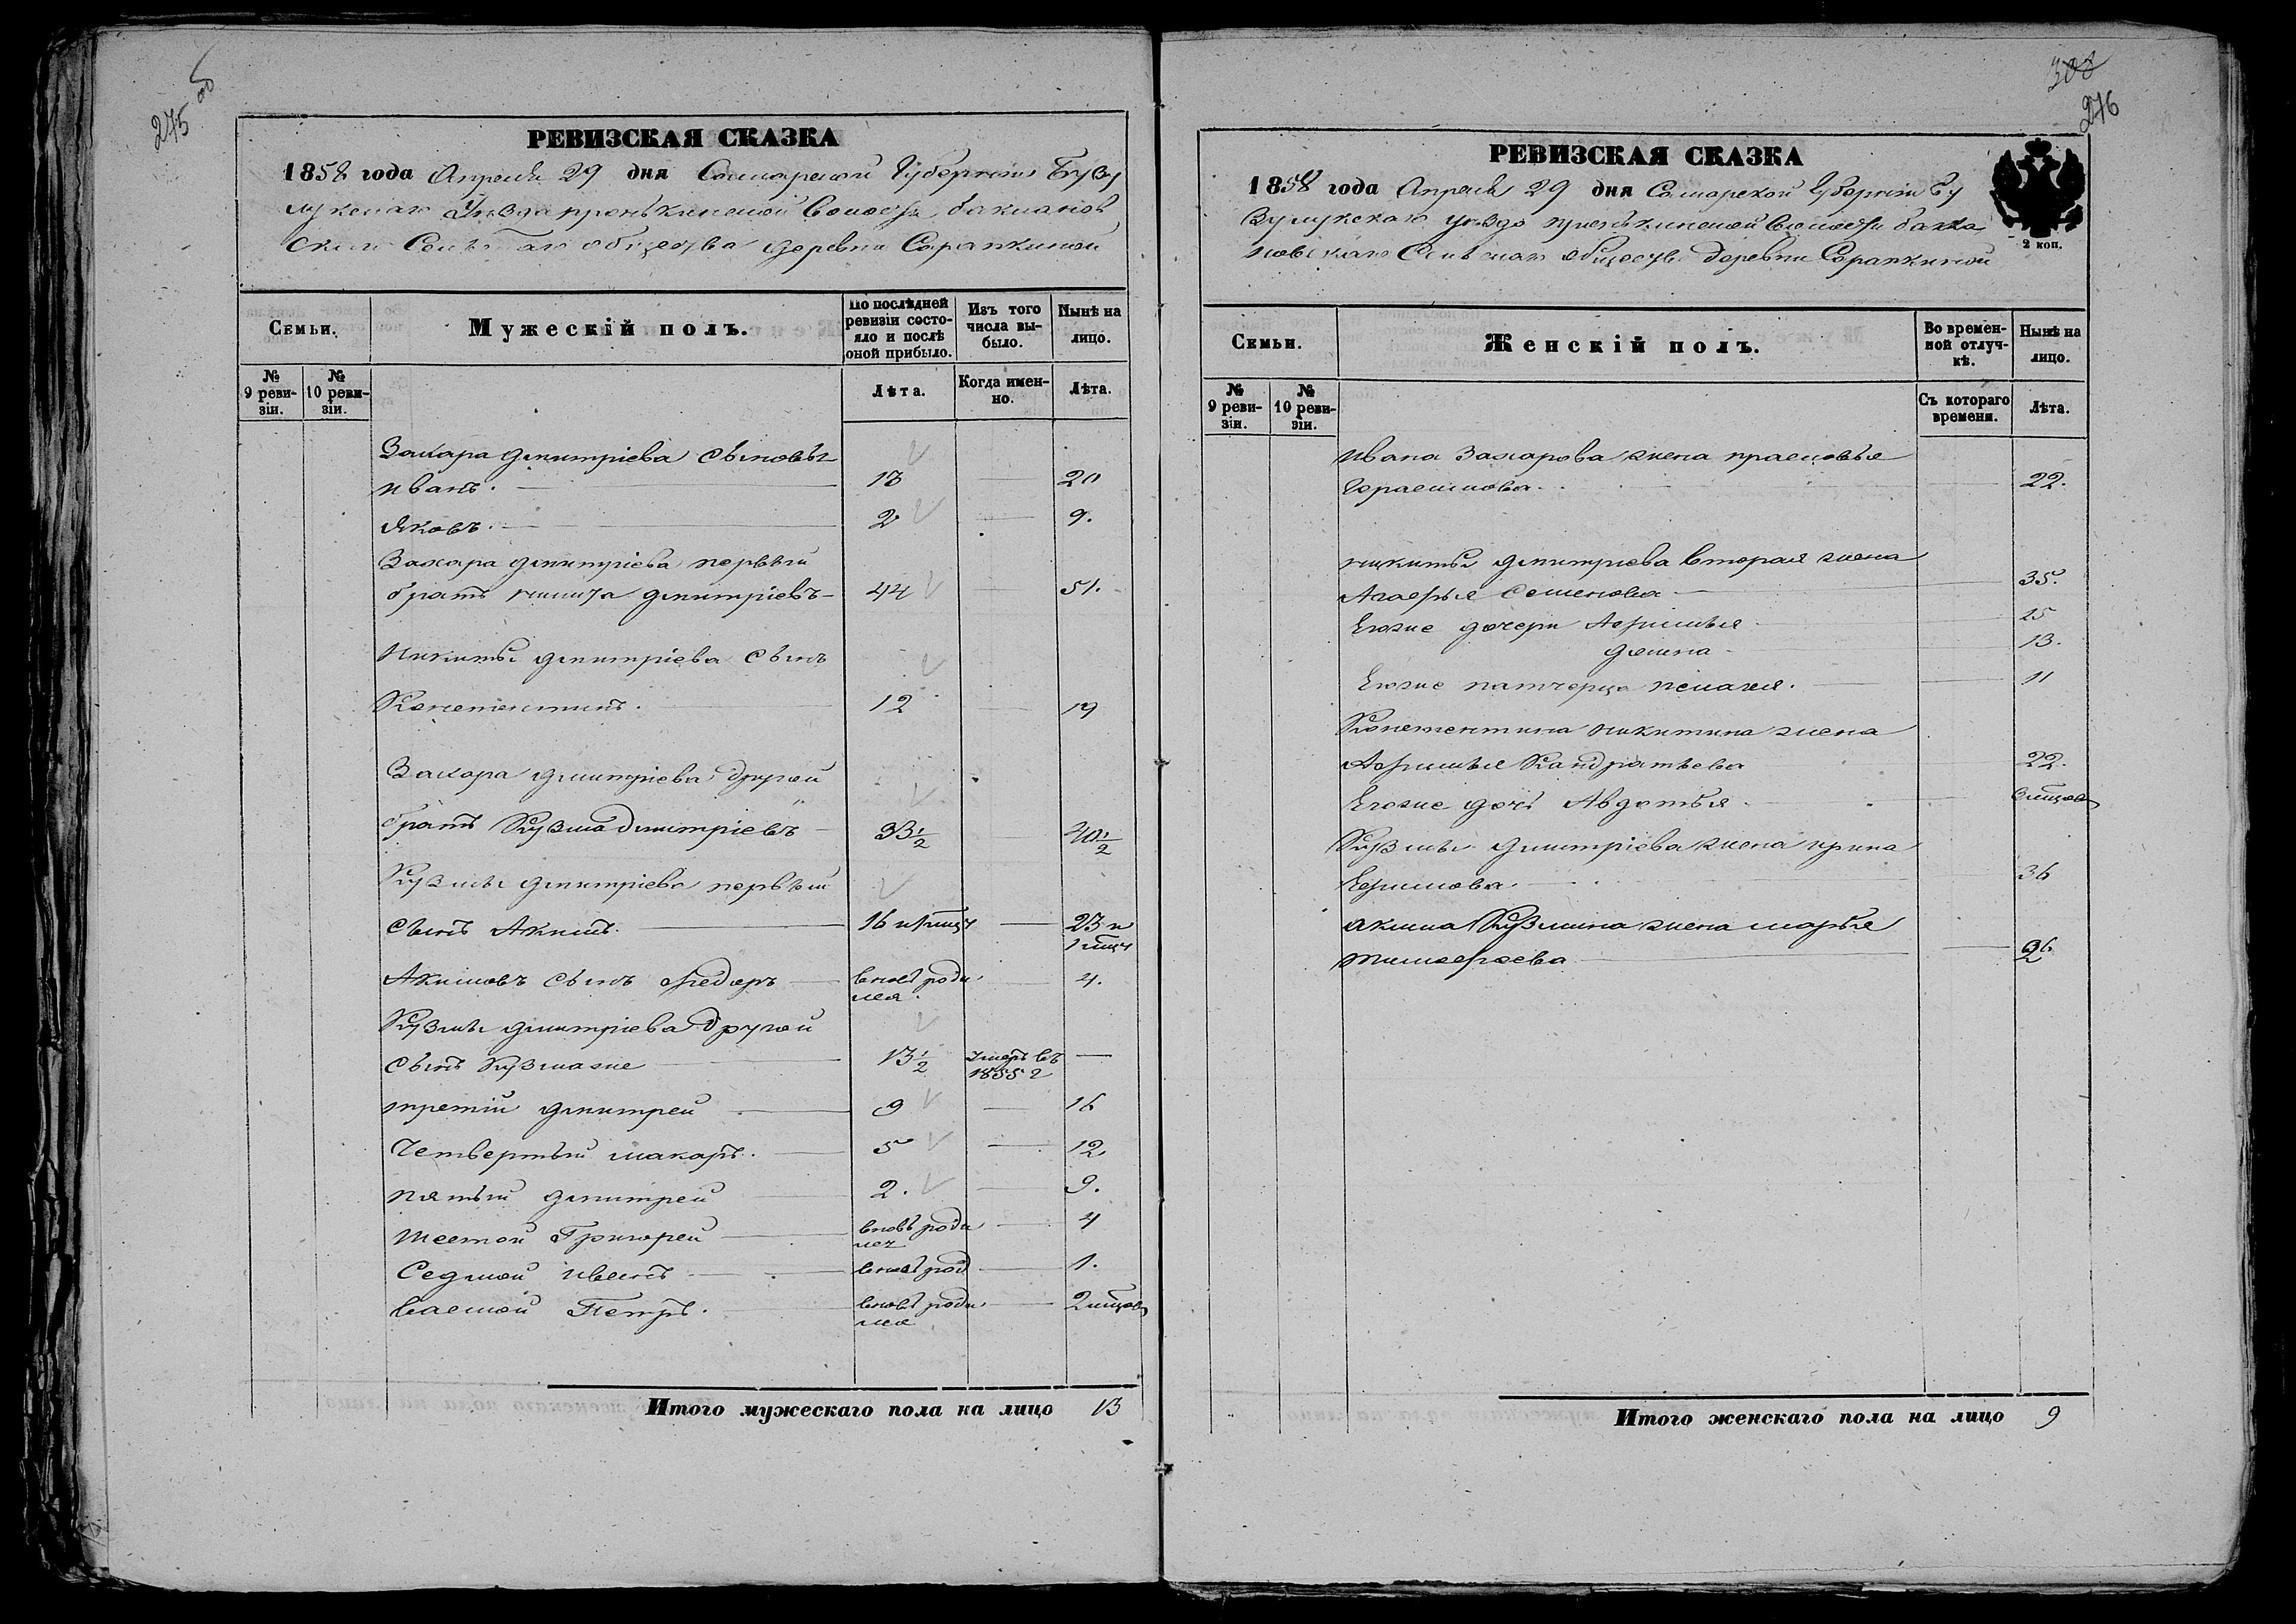 275 об
РЕВИЗСКАЯ СКАЗКА
1858 года Апреля 29 дня Самарской Губернии Бузу
лукскаго Уезда пронькинской Волости бакланов
скаго Сельскаго общества деревни Сарапкиной
Семьи.
Мужескій полъ.
По послѣдней ревизіи состо-
яло и послѣ
оной прибыло.
Изъ того
числа вы-
было.
Нынѣ на
лицо.
№
9 реви-
зіи.
№
10 реви-
зіи.
Лѣта.
Когда имен-
но.
Лѣта.
Захара дмитріева сыновья
иванъ. 13 20
Яковъ. 2 9.
Захара дмитріева первый
братъ никита дмитріевъ 44 51.
Никиты дмитріева сынъ
Констентинъ. 12 19
Захара дмитріева другой
братъ Кузма дмитріевъ 33½ 40½
Кузмы дмитріева первый
сынъ Акимъ. 16 и 1 мцъ 23 и
1 мцъ
Акимовъ сынъ Федоръ вновь роди
лся. 4.
Кузмы дмитріева другой
сынъ Кузмаже 13½ умеръ въ
1855 г
третій дмитрей 9 16
Четвертый макаръ. 5 12
пятый дмитрей 2. 9.
шестой Григорей вновь роди
лся 4
Седмой иванъ вновь род 1.
Васмой Петръ. вновь роди
лся 2 мцов
Итого мужескаго пола на лицо 13
308
276
РЕВИЗСКАЯ СКАЗКА
1858 года Апреля 29 дня Самарской Губернии Бу
Зулукскаго уезда пронькинской Волости бакла
новскаго Сельскаго обществ деревни Сарапкиной
2 коп.
Семьи.
Женскій полъ.
Во времен-
ной отлуч-
кѣ.
Нынѣ на
лицо.
№
9 реви-
зіи.
№
10 реви-
зіи.
Съ котораго
времени.
Лѣта.
Ивана Захарова жена прасковья
Герасимова. 22.
никиты дмитриева вторая жена
Агафья Семенова 35.
Егоже дочери Афимья 15
домна 13.
Егоже патчерца пелагея. 11
Констентина никитина жена
Афимья Кандратьева 22.
Егоже дочь Авдотья. 6 мцов
Кузмы дмитріева жена ирина
Ефимова 36
акима Кузмина жена марья
тимофеева 26
Итого женскаго пола на лицо 9